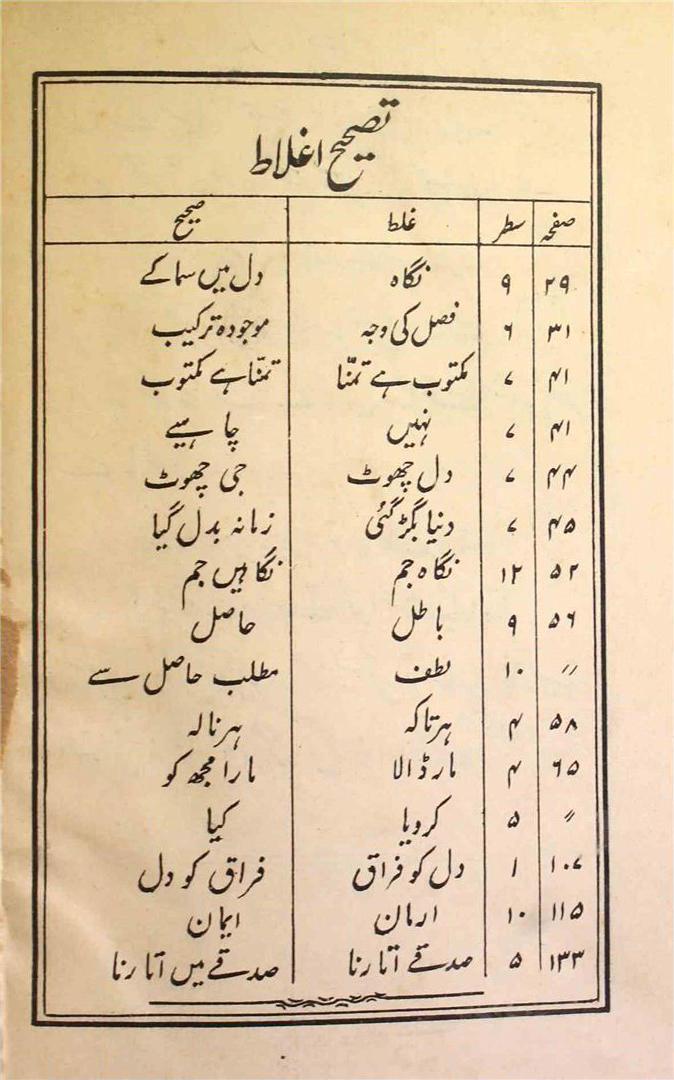 تصحیح اغلاط
صفحہ سطر غلط صحیح
۲۹ ۹ نگاہ دل میں سما کے
۳۱ ۶ فصل کی وجہ موجودہ ترکیب
۴۱ ۷ مکتوب ہے تمنّا تمنّا ہے مکتوب
۴۱ ۷ نہیں چاہیے
۴۴ ۷ دل چھوٹ جی چھوٹ
۴۵ ۷ دنیا بگڑ گئی زمانہ بدل گیا
۵۲ ۱۲ نگاہ جم نگاہیں جم
۵۶ ۹ باطل حاصل
〃 ۱۰ لطف مطلب حاصل سے
۵۸ ۴ ہرتاکہ ہرنالہ
۶۵ ۴ مار ڈالا مارا مجھ کو
〃 ۵ کردیا کیا
۱۰۷ ۱ دل کو فراق فراق کو دل
۱۱۵ ۱۰ ارمان ایمان
۱۳۳ ۵ صدقے اتارنا صدقے میں اتارنا